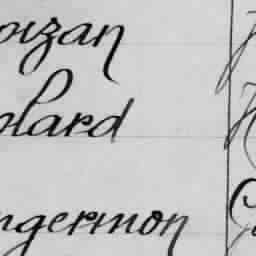 oizan
olard
ngermon